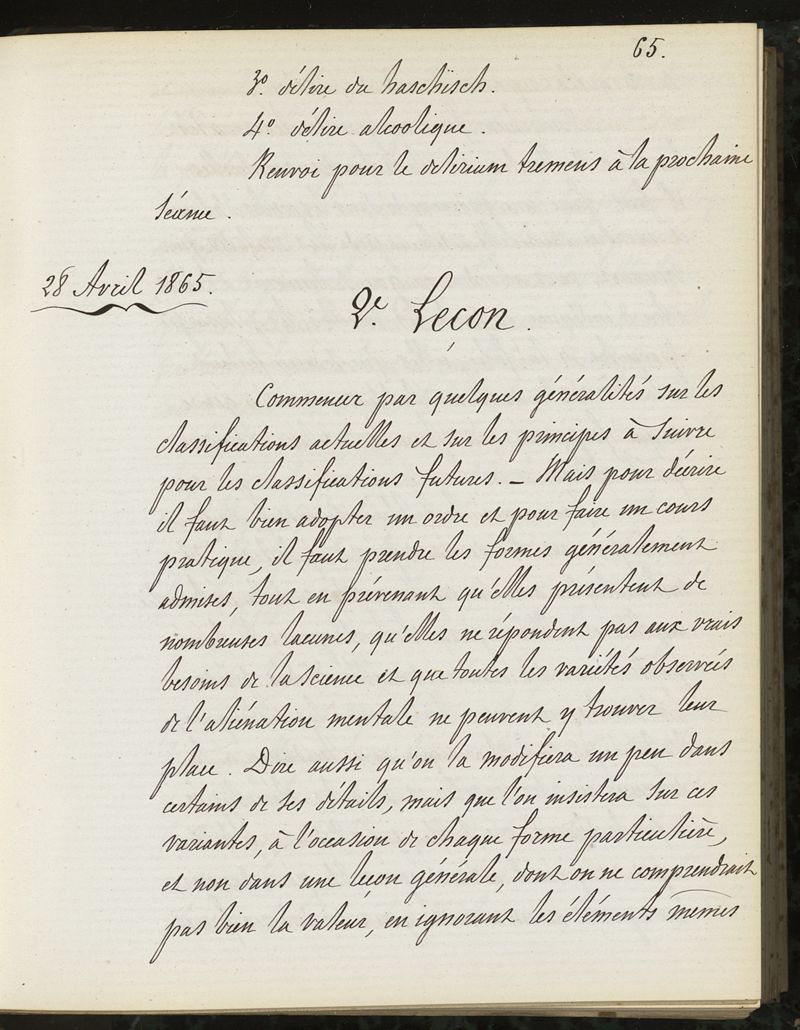 65.
3º délire du haschisch.
4º délire alcoolique.
Renvoi pour le delirium tremens à la prochaine
séance.
28 Avril 1865.
2e. Leçon.
Commencer par quelques généralités sur les
classifications actuelles et sur les principes à suivre
pour les classifications futures. — Mais pour décrire
il faut bien adopter un ordre et pour faire un cours
pratique, il faut prendre les formes généralement
admises, tout en prévenant qu'elles présentent de
nombreuses lacunes, qu'elles ne répondent pas aux vrais
besoins de la science et que toutes les variétés observées
de l'aliénation mentale ne peuvent y trouver leur
place. Dire aussi qu'on la modifiera un peu dans
certains de ses détails, mais que l'on insistera sur ces
variantes, à l'occasion de chaque forme particulière,
et non dans une leçon générale, dont on ne comprendrait
pas bien la valeur, en ignorant les éléments mêmes